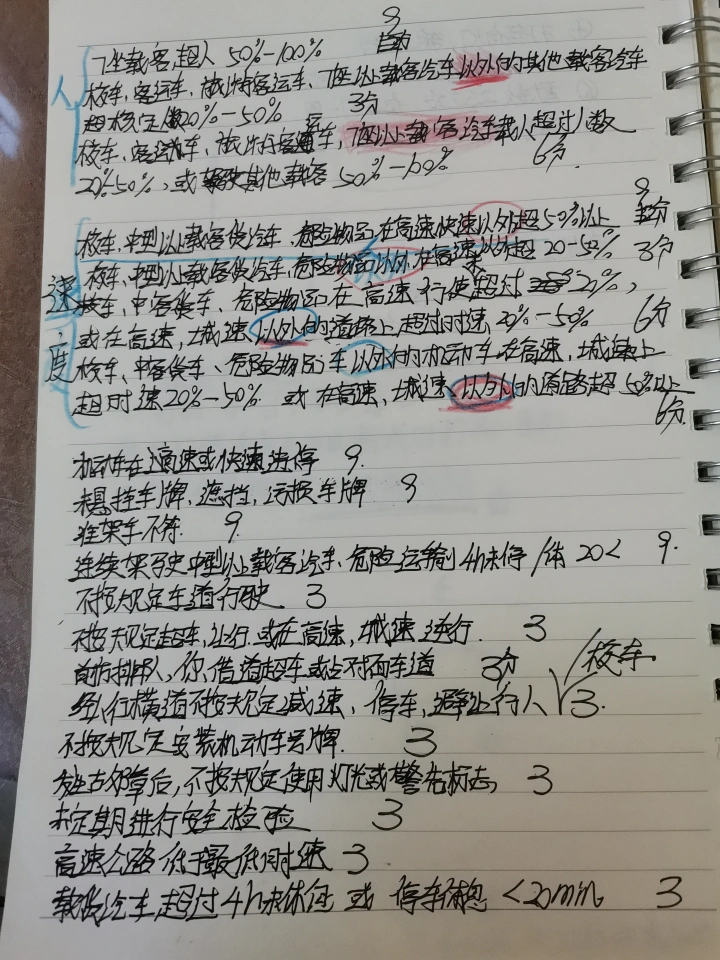 9
7坐载客超人 50%-100%
人 校车、客运车、旅游客运车、7座以上载客汽车以外的其他载客汽车
超核定人数20%-50% 3分
校车、客运车、旅游客运车,7座以上载客汽车载人超过人数
20%-50%,或其他载客 50%-100% 6分
9
校车、中型以上载客货汽车、危险物品在高速快速以外超50%以上
校车、中型以上载客货汽车、危险物品以外,在高速以外超20-50% 3分
速度
校车、中客货车、危险物品在高速行使超过20%,
或在高速,城速以外的道路上超过时速20%-50% 6分
校车、中客货车、危险物品车以外的机动车在高速,城速上
超时速20%-50% 或在高速,城速以外的道路超50%以上
6分
机动车在高速或快速违停 9.
未悬挂车牌、遮挡,污损车牌 9
准架车不符. 9.
连续架驶中型以上载客汽车、危险运输4h未停/休20< 9.
不按规定车道行驶 3
不按规定超车,让行.或在高速,城速逆行. 3
前方排队,你借道超车或占对面车道 3分 /校车
经人行横道不按规定减速、停车,避让行人 3.
不按规定安装机动车号牌. 3
发生故障后,不按规定使用灯光或警告标志 3
未定期进行安全检验 3
高速公路低于最低时速 3
载货汽车超过4h未休息 或 停车休息 <20min 3